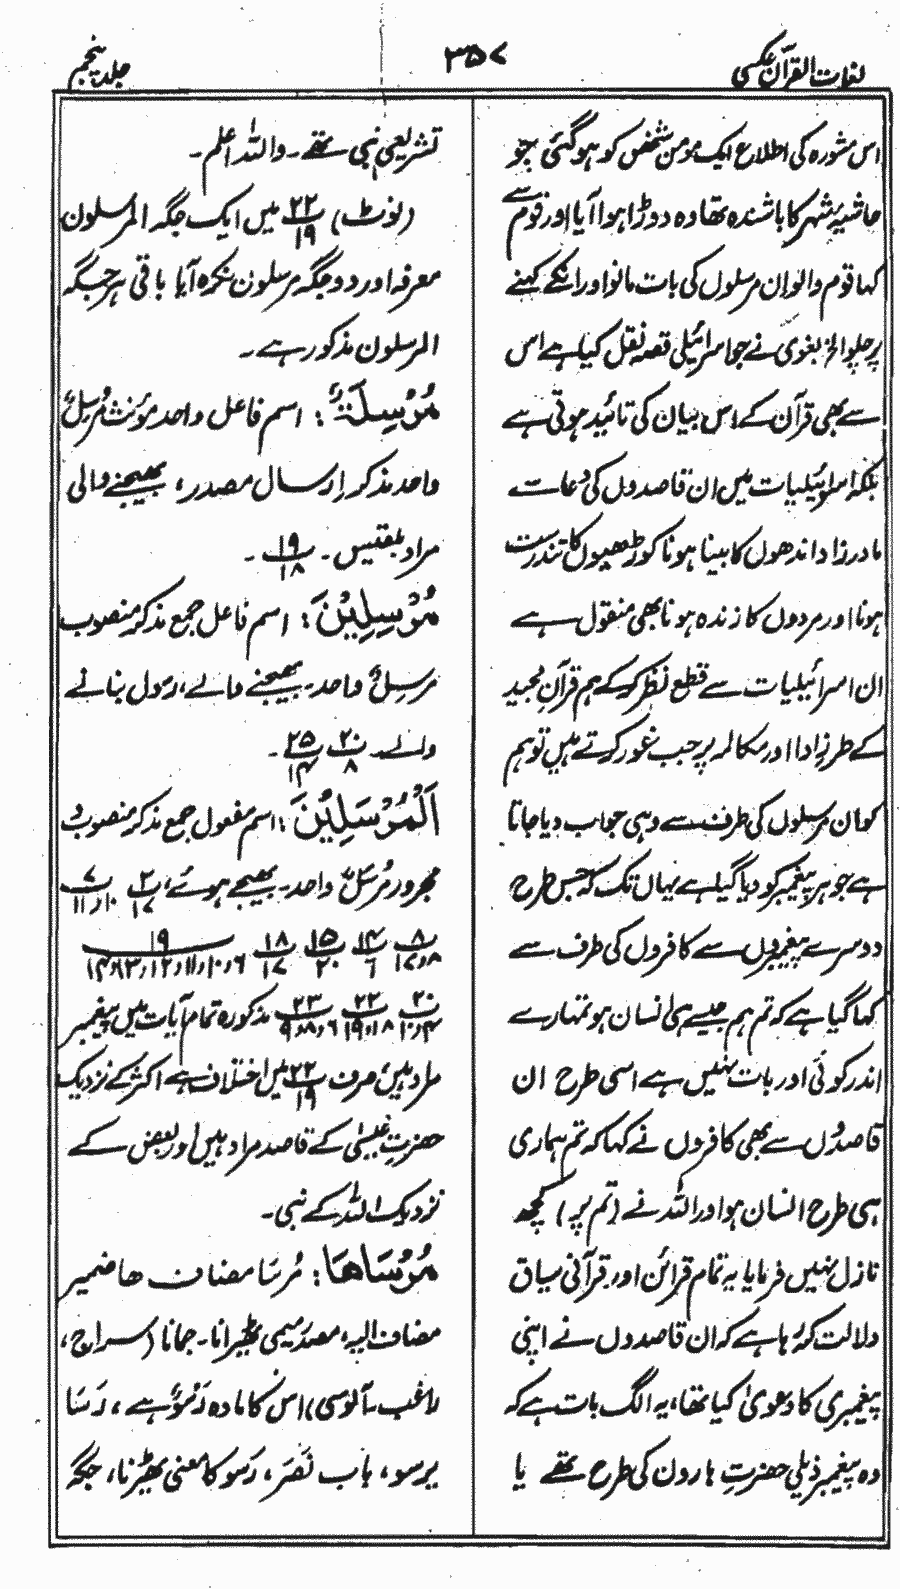 لغات القرآن عکسی
۳۵۷
جلد پنجم
اس مشورہ کی اطلاع ایک مومن شخص کو ہو گئی جو
حاشیۂ شہر کا باشندہ تھا وہ دوڑا ہوا آیا اور قوم سے
کہا قوم والو ان مرسلوں کی بات مانو اور انکے کہنے
پر چلو الخ بغوی نے جو اسرائیلی قصہ نقل کیا ہے اس
سے بھی قرآن کے اس بیان کی تائید ہوتی ہے
بلکہ اسرائیلیات میں ان قاصدوں کی دعا سے
مادر زاد اندھوں کا بینا ہونا کوڑھیوں کا تندرست
ہونا اور مردوں کا زندہ ہونا بھی منقول ہے
ان اسرائیلیات سے قطع نظر کر کے ہم قرآن مجید
کے طرز ادا اور مکالمہ پر جب غور کرتے ہیں تو ہم
کو ان مرسلوں کی طرف سے وہی جواب دیا جاتا
ہے جو ہر پیغمبر کو دیا گیا ہے یہاں تک کہ جس طرح
دوسرے پیغمبروں سے کافروں کی طرف سے
کہا گیا ہے کہ تم ہم جیسے ہی انسان ہو تمہارے
اندر کوئی اور بات نہیں ہے اسی طرح ان
قاصدوں سے بھی کافروں نے کہا کہ تم ہماری
ہی طرح انسان ہو اور اللہ نے (تم پر) کچھ
نازل نہیں فرمایا یہ تمام قرائن اور قرآنی سیاق
دلالت کر رہا ہے کہ ان قاصدوں نے اپنی
پیغمبری کا دعویٰ کیا تھا، یہ الگ بات ہے کہ
وہ پیغمبر ذیلی حضرت ہارون کی طرح تھے یا
تشریعی نبی تھے۔ واللہ اعلم۔
(نوٹ) ۲۲/۱۹ میں ایک جگہ المرسلون
معرفہ اور دو جگہ مرسلون نکرہ آیا باقی ہر جگہ
المرسلون مذکور ہے۔
مُرْسِلَةٌ : اسم فاعل واحد مؤنث مُرْسِلٌ
واحد مذکر اِرسال مصدر، بھیجنے والی
مراد بلقیس۔ ۱۹/۱۸۔
مُرْسِلِيْنَ : اسم فاعل جمع مذکر منصوب
مُرْسِلٌ واحد۔ بھیجنے والے، رسول بنانے
والے۔ ۲۰/۸ ۲۵/۱۴۔
اَلْمُرْسَلِيْنَ : اسم مفعول جمع مذکر منصوب و
مجرور مُرْسَلٌ واحد۔ بھیجے ہوئے، ۲/۱۷ ۷/۱۰ر۱۱
۸/۸ر۱۷ ۱۴/۶ ۱۵/۲۰ ۱۸/۱۷ ۱۹/۶ر۱۰ر۱۱ر۱۲ر۱۳ر۱۴
۲۰/۴ر۱۰ ۲۲/۱۸ر۱۹ ۲۳/۶ر۸ر۹ مذکورہ تمام آیات میں پیغمبر
مراد ہیں، صرف ۲۲/۱۹ میں اختلاف ہے اکثر کے نزدیک
حضرت عیسیٰ کے قاصد مراد ہیں اور بعض کے
نزدیک اللہ کے نبی۔
مُرْسَاهَا : مُرسَا مضاف ھا ضمیر
مضاف الیہ، مصدر میمی ٹھیرانا۔ جمانا (سراج،
راغب۔ آلوسی) اس کا مادہ رَسْوٌ ہے، رَسَا
یرسو، باب نَصَرَ، رَسو کا معنی ٹھہرنا، جگہ